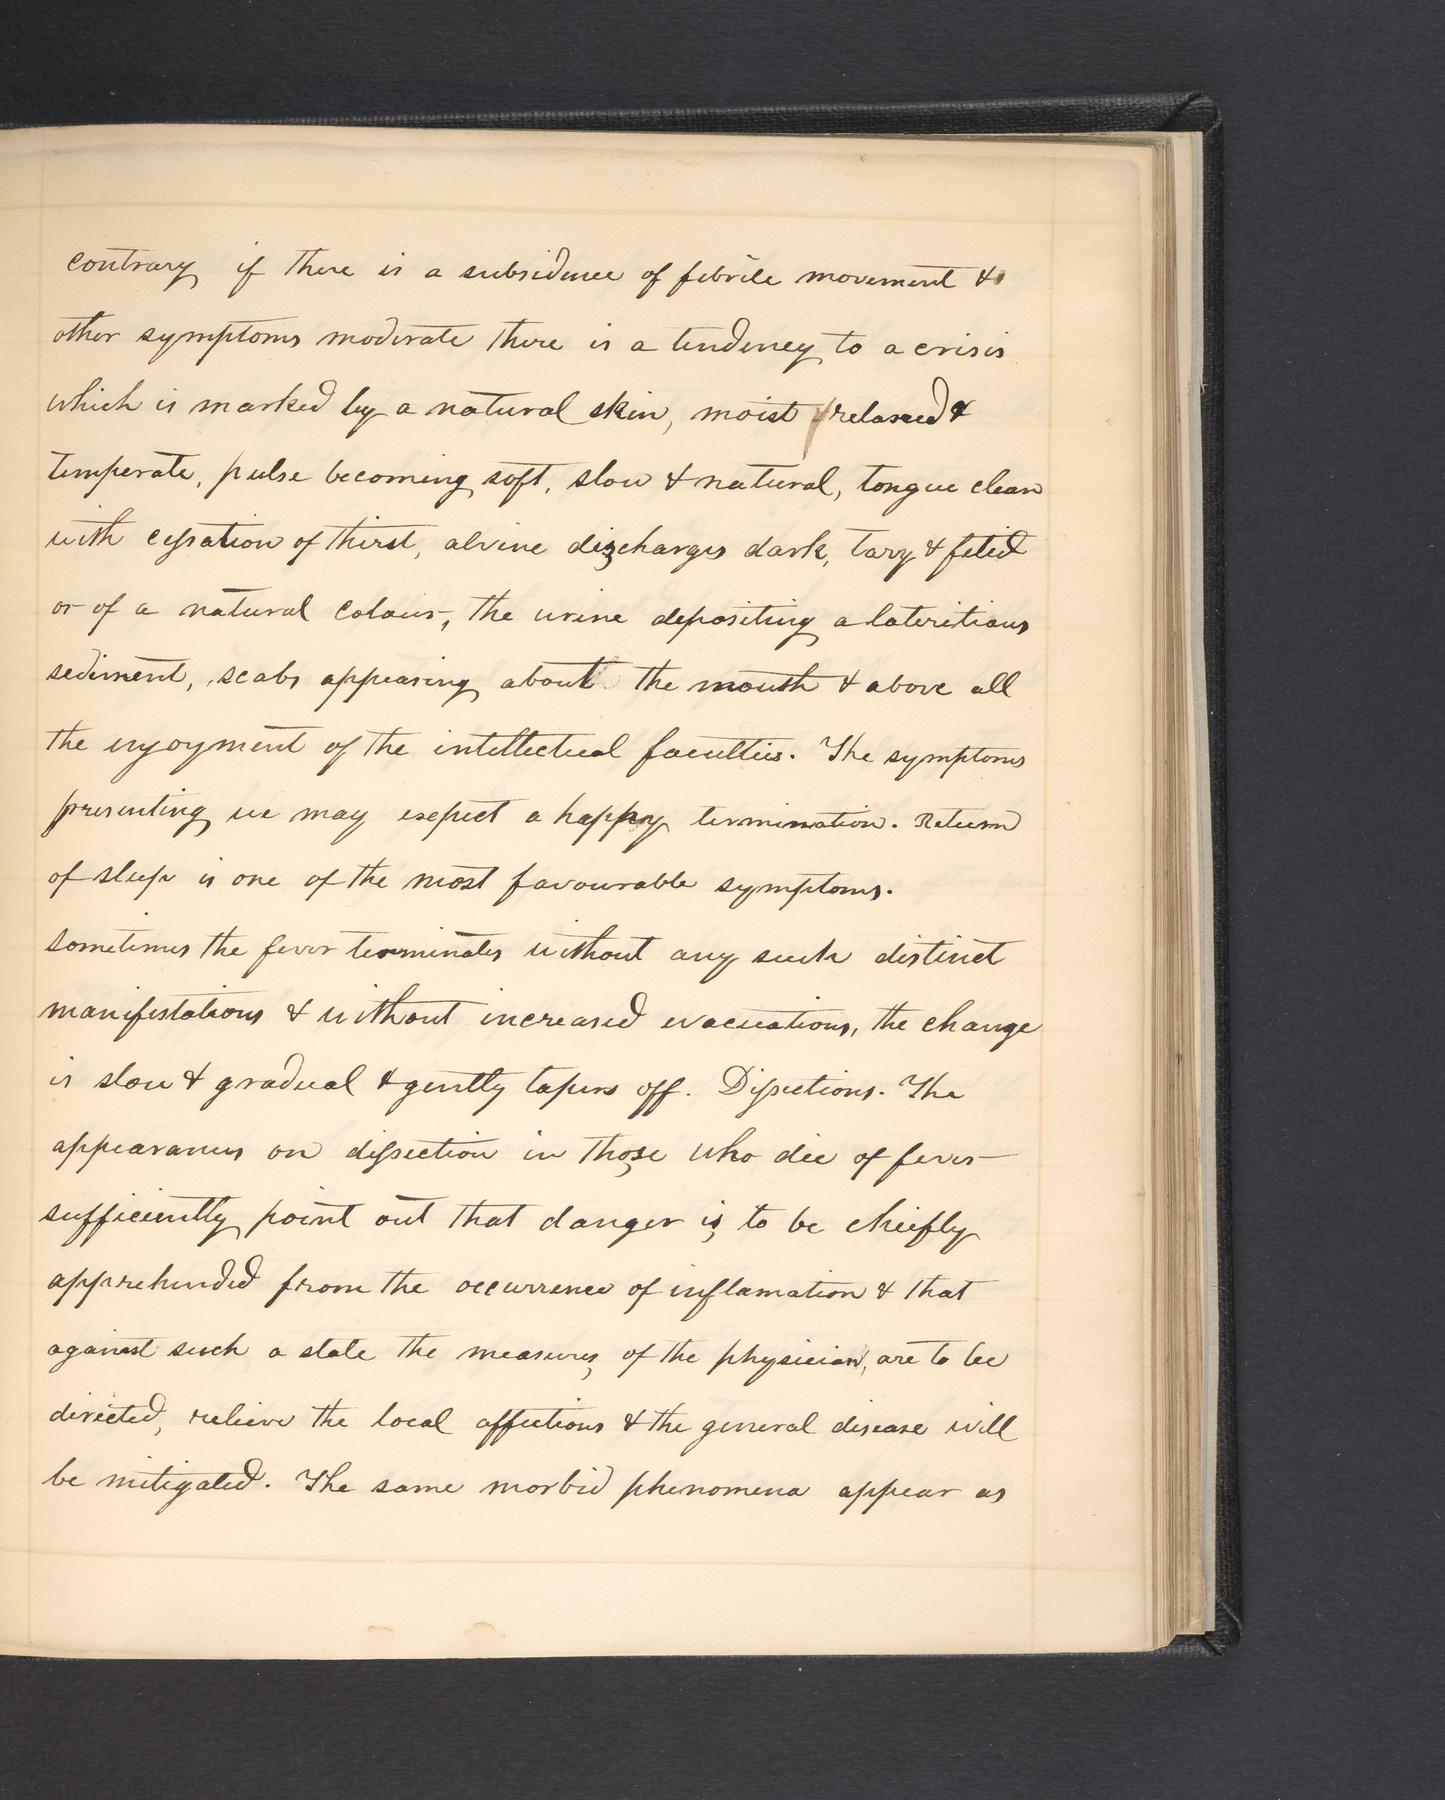 contrary if there is a subsidence of febrile movement &
other symptoms moderate there is a tendency to a crisis
which is marked by a natural skin, moist relaxed &
temperate, pulse becoming soft, slow & natural, tongue clean
with cessation of thirst, alvine discharges dark, tary & fetid
or of a natural colour, the urine depositing a lateritious
sediment, scabs appearing about the mouth & above all
the enjoyment of the intellectual faculties. The symptoms
presenting we may expect a happy termination. Return
of sleep is one of the most favourable symptoms.
Sometimes the fever terminates without any such distinct
manifestations & without increased evacuations, the change
is slow & gradual & gently tapers off. Dissections. The
appearances on dissection in those who die of fever
sufficiently point out that danger is to be cheifly
apprehended from the occurrence of inflamation & that
against such a state the measures of the physician, are to be
directed, relieve the local affections & the general disease will
be mitigated. The same morbid phenomena appear as